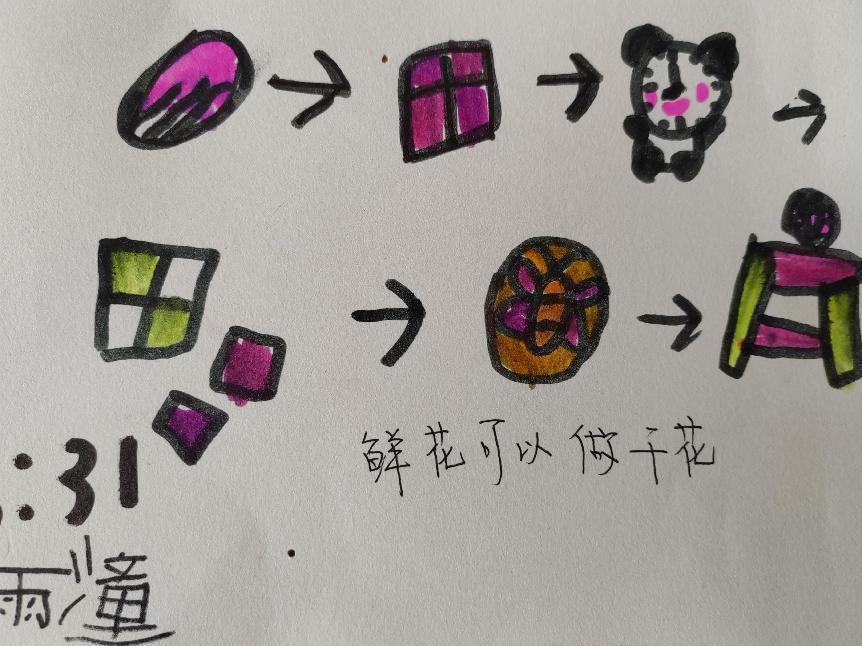 鲜花可以做干花
:31
雨潼